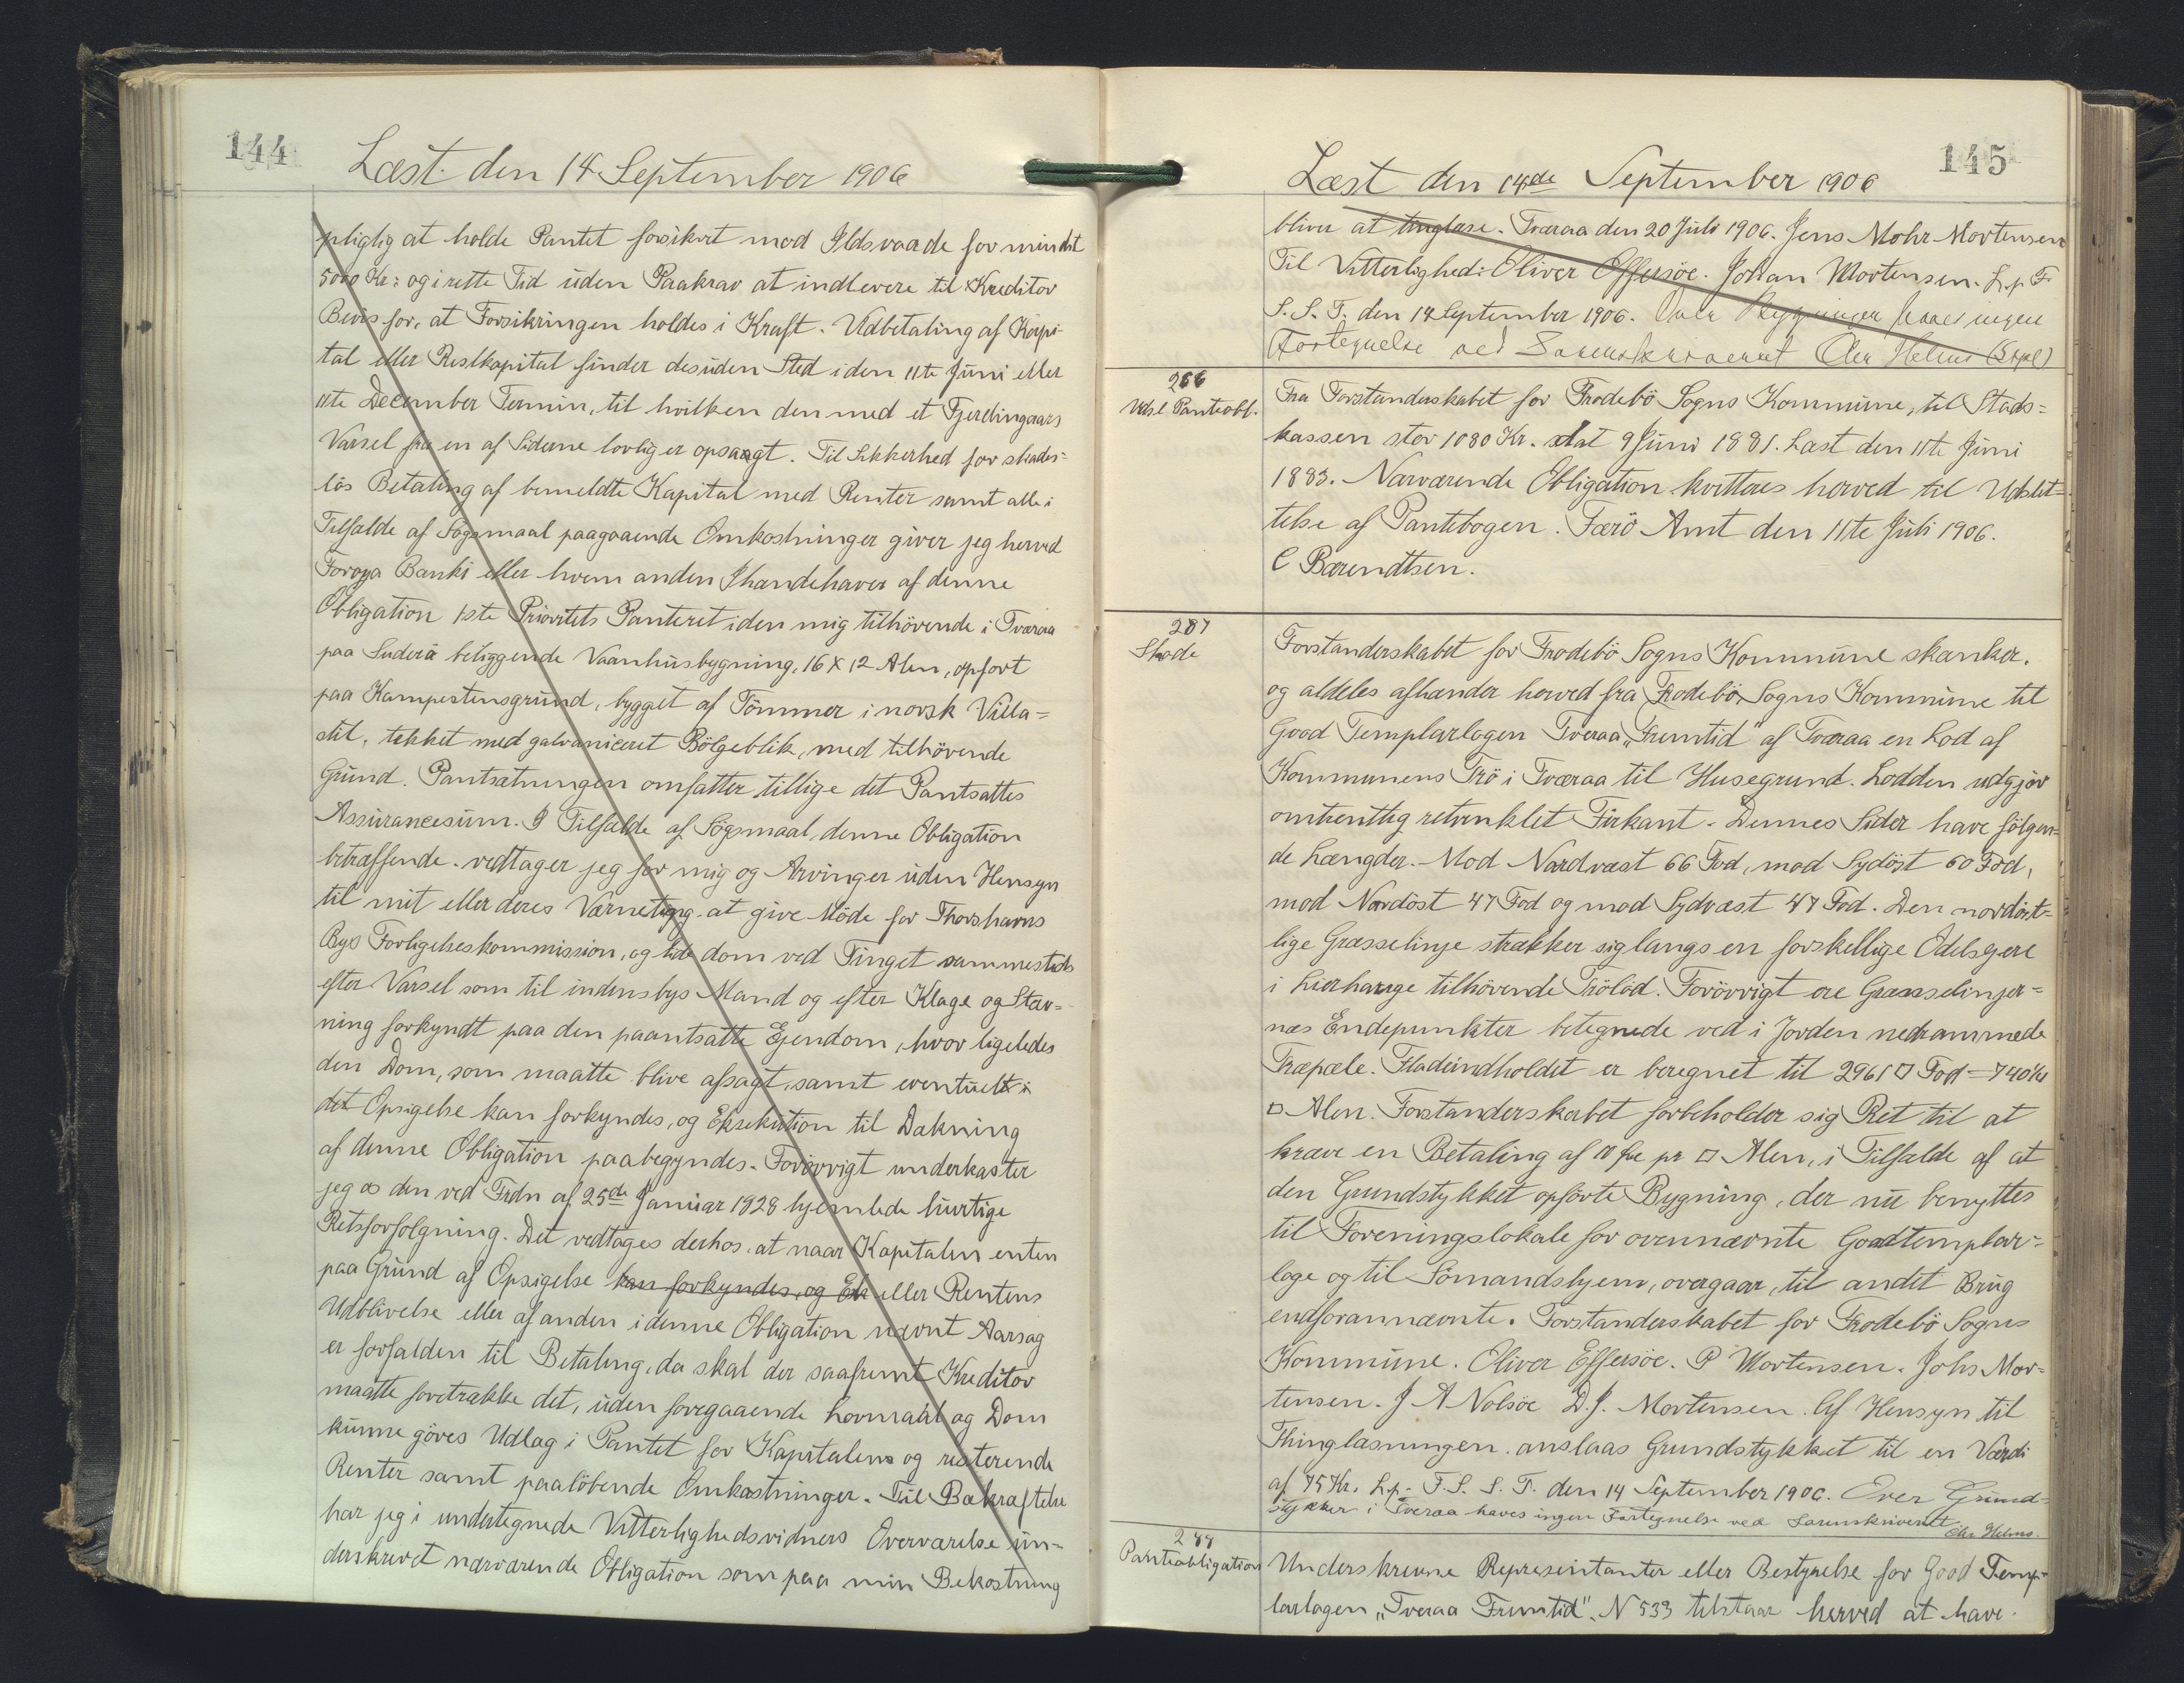 144
Læst den 14 September 1906
pligtig at holde Pantet forsikret mod Ildsvaade for mindst
5000 Kr: og i rette Tid uden Paakrav at indlevere til Kreditor
Bevis for, at Forsikringen holdes i Kraft. Udbetaling af Kapi-
tal eller Restkapital finder desuden Sted i den 11te Juni eller
11te December Termin, til hvilken den med et Fjerdingaars
Varsel fra en af Siderne lovlig er opsaagt. Til Sikkerhed for skades-
lös Betaling af bemeldte Kapital med Renter samt alle i
Tilfælde af Sögsmaal paagaaende Omkostninger giver jeg herved
Foroya Banki eller hvem anden Ihændehaver af denne
Obligation 1ste Prioritets Panteret i den mig tilhörende i Tværaa
paa Suderö beliggende Vaanhusbygning, 16 x 12 Alen, opfort
paa Kampestensgrund, bygget af Tömmer i norsk Villa-
stil, tækket med galvaniceret Bölgeblik, med tilhörende
Grund. Pantsætningen omfatter tillige det Pantsattes
Assurancesum. I Tilfælde af Sögsmaal, denne Obligation
betræffende, vedtager jeg for mig og Arvinger uden Hensyn
til mit eller deres Værneting at give Möde for Thorshavns
Bys Forligelseskommission, og lide dom ved Tinget sammesteds
efter Varsel som til indenbys Mand og efter Klage og Stæv-
ning forkyndt paa den paantsatte Ejendom, hvor ligeledes
den Dom, som maatte blive afsagt, samt eventuelt i
det Opsigelse kan forkyndes, og Eksekution til Dækning
af denne Obligation paabegyndes. Forövrigt underkaster
jeg os den ved Frdn af 25de Januar 1828 hjemlede hurtige
Retsforfolgning. Det vedtages derhos, at naar Kapitalen enten
paa Grund af Opsigelse kan forkyndes, og Ek eller Rentens
Udblivelse eller af anden i denne Obligation nævnt Aarsag
er forfalden til Betaling, da skal der saafremt Kreditor
maatte foretrække det, uden foregaaende Lovmaal og Dom
kunne göres Udlæg i Pantet for Kapitalens og resterende
Renter samt paalöbende Omkostninger. Til Bekræftelse
har jeg i undertegnede Vitterlighedsvidners Overværelse un-
derskrevet nærværende Obligation som paa min Bekostning
145
Læst den 14de September 1906
bliver at tinglæse. Tværaa den 20 Juli 1906. Jens Mohr Mortensen
Til Vitterlighed: Oliver Effersöe. Johan Mortensen. L. p. F.
S. S. T. den 14 September 1906. Over Bygninger haves ingen
Fortegnelse ved Sorenskriveriet Chr Helms (Stpl)
266
Udsl Panteobl.
Fra Forstanderskabet for Frodebö Sogns Kommune, til Stads-
kassen stor 1080 Kr. dat 9 Juni 1881. Læst den 11te Juni
1883. Nærværende Obligation kvitteres herved til Udslet-
telse af Pantebogen. Færö Amt den 11te Juli 1906.
C Bærendtsen.
287
Skode
Forstanderskabet for Frodebö Sogns Kommune skænker,
og aldeles afhænder herved fra Frodebö Sogns Kommune til
Good Templarlogen Tveraa "Fremtid" af Tværaa en Lod af
Kommunens Trö i Tværaa til Husegrund. Lodden udgjör
omtrenttlig retvinklet Firkant. Dennes Sider have fölgen-
de Længder. Mod Nordvæst 66 Fod, mod Sydöst 60 Fod,
mod Nordöst 47 Fod og mod Sydvæst 47 Fod. Den nordöst-
lige Græsselinje strækker sig langs en forskellige Odelsejere
i Lierhauge tilhörende Trölod. Forövrigt ere Grænselinjer-
nes Endepunkter betegnede ved i Jorden nedrammede
Træpæle. Fladeindholdet er beregnet til 2961 □ Fod = 740 1/4
□ Alen. Forstanderskabet forbeholder sig Ret til at
kræve en Betaling af 10 Øre pr □ Alen, i Tilfælde af at
den Grundstykket opförte Bygning, der nu benyttes
til Foreningslokale for ovennævnte Goodtemplar-
loge og til Sömandshjem, overgaar, til andet Brug
endforannævnte. Forstanderskabet for Frodebö Sogns
Kommune. Oliver Effersöe. P Mortensen. Johs Mor-
tensen. J A Nolsöe D. J. Mortensen. Af Hensyn til
Thinglæsningen, anslaas Grundstykket til en Værdi
af 75 Kr. L. p. F. S. S. T. den 14 September 1906. Over Grund-
stykker i Tveraa haves ingen Fortegnelse ved Sorenskriveriet
Chr Helms.
Panteobligation
Underskrevne Representanter eller Bestyrelse for Good Temp-
larlogen "Tveraa Fremtid" N 533 tilstaar herved at have